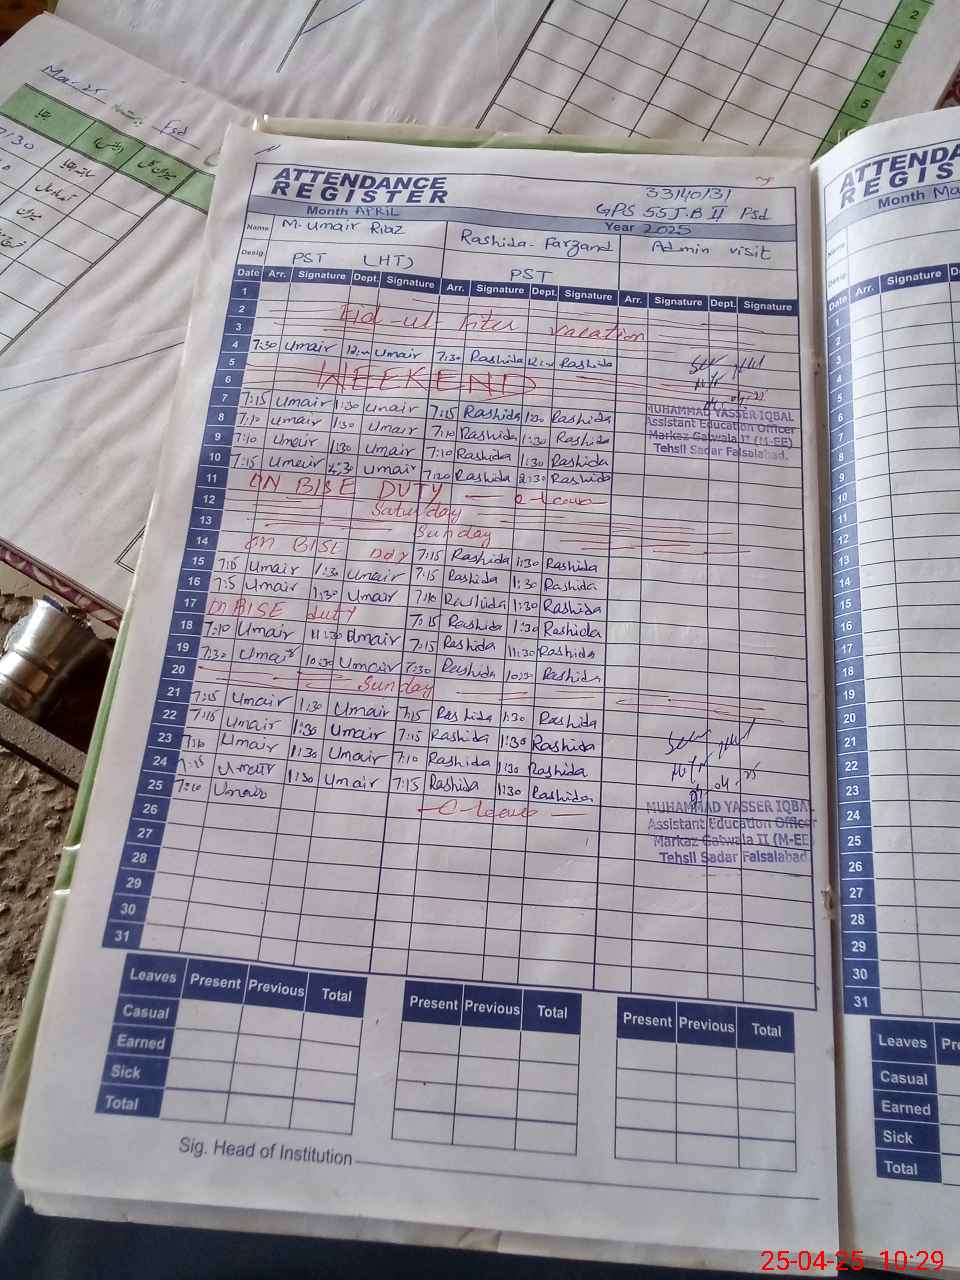 ATTENDANCE
REGISTER
33140131
GPS 55 J.B II Fsd
Month APRIL
Year 2025
Name M. Umair Riaz Rashida Farzand Admin visit
Desig PST (HT) PST
Date Arr. Signature Dept. Signature Arr. Signature Dept. Signature Arr. Signature Dept. Signature
1
2 Eid-ul-Fiter vacation
3
4 7:30 Umair Umair 7:30 Rashida Rashida
5
6 WEEKEND
7 7:15 Umair 1:30 Umair 7:15 Rashida 1:30 Rashida
8 7:10 Umair 1:30 Umair 7:10 Rashida 1:30 Rashida
9 7:10 Umair 1:30 Umair 7:10 Rashida 1:30 Rashida
10 7:15 Umair 2:30 Umair Rashida 2:30 Rashida
MUHAMMAD YASSER IQBAL
Assistant Education Officer
Markaz Gatwala II (M-EE)
Tehsil Sadar Faisalabad.
11 ON BISE DUTY
12 Saturday
13 Sunday
14 on BISE 7:15 Rashida 1:30 Rashida
15 7:15 Umair 1:30 Umair 7:15 Rashida 1:30 Rashida
16 7:5 Umair 1:30 Umair 7:10 Rashida 1:30 Rashida
17 on BISE duty 7:15 Rashida 1:30 Rashida
18 7:10 Umair 11:30 Umair 7:15 Rashida 11:30 Rashida
19 7:30 Umair 10:30 Umair 7:30 Rashida Rashida
20 Sunday
21 7:15 Umair 1:30 Umair 7:15 Rashida 1:30 Rashida
22 7:15 Umair 1:30 Umair 7:15 Rashida 1:30 Rashida
23 7:10 Umair 1:30 Umair 7:10 Rashida 1:30 Rashida
24 7:15 Umair 1:30 Umair 7:15 Rashida 1:30 Rashida
25 7:10 Umair C-leave
26
27
28
29
30
31
MUHAMMAD YASSER IQBAL
Assistant Education Officer
Markaz Gatwala II (M-EE
Tehsil Sadar Faisalabad
Leaves Present Previous Total Present Previous Total Present Previous Total
Casual
Earned
Sick
Total
Sig. Head of Institution
ATTENDA
REGIS
Month Ma
Name
Desig
Date Arr. Signature
1
2
3
4
5
6
7
8
9
10
11
12
13
14
15
16
17
18
19
20
21
22
23
24
25
26
27
28
29
30
31
Leaves Pre
Casual
Earned
Sick
Total
2
3
4
5
Fsd
25-04-25 10:29